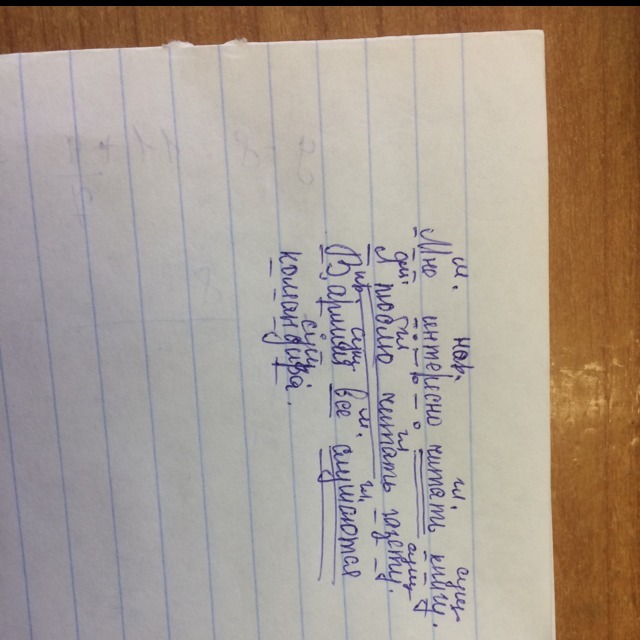 м. нар. гл. сущ
Мне интерисно читать книгу.
гл гл сущ
Я люблю читать газету.
пр. сущ м. гл.
В армии все слушаются
сущ.
командира.